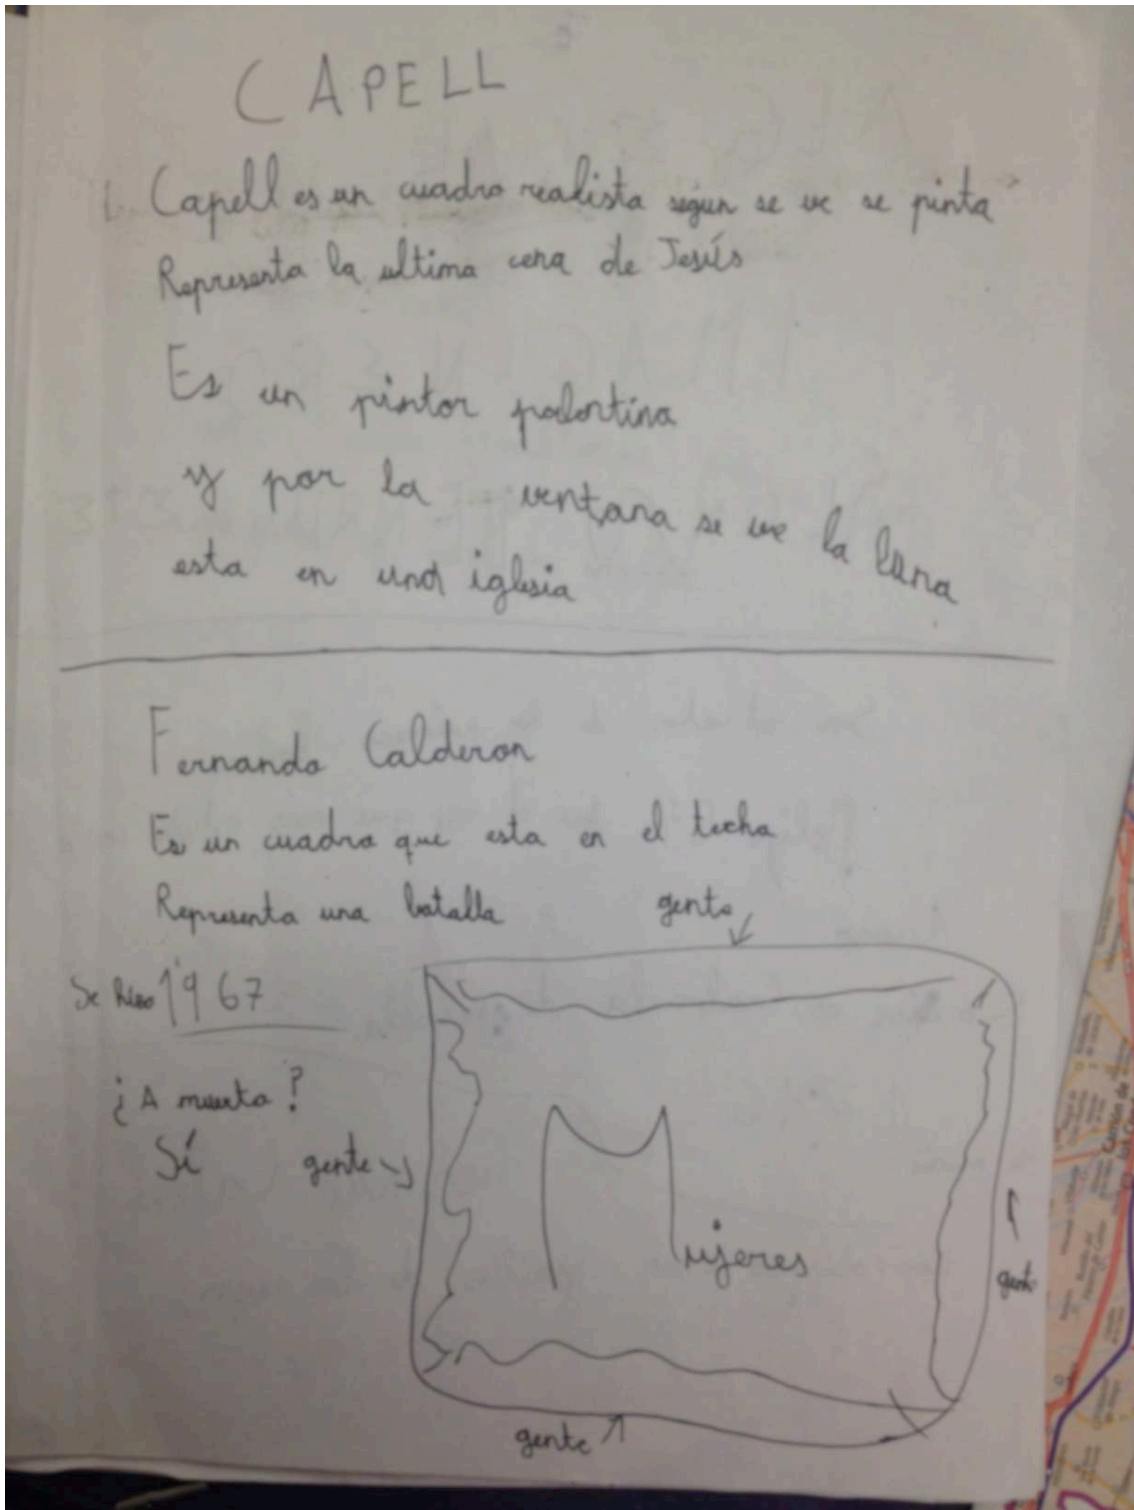 CAPELL
Capell es un cuadro realista segun se ve se pinta
Representa la ultima cena de Jesús
Es un pintor palentina
y por la ventana se ve la luna
esta en una iglesia
Fernando Calderon
Es un cuadro que esta en el techo
Representa una batalla
gente
Se hizo 1967
¿A muerto?
Sí
gente
Mujeres
gente
gente